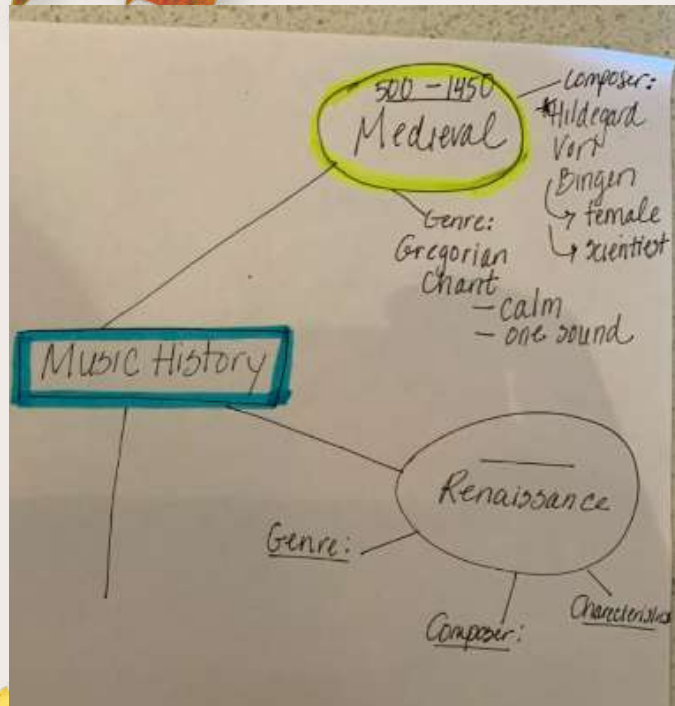 500 - 1450
Medieval
Composer:
*Hildegard
Von
Bingen
↳ female
↳ scientist
Genre:
Gregorian
Chant
- calm
- one sound
Music History
Renaissance
Genre:
Composer: